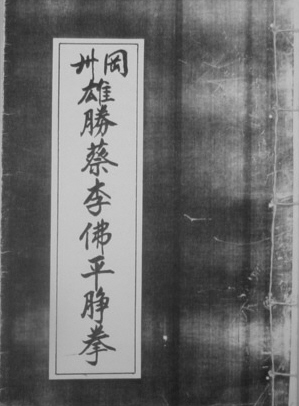 岡州
雄勝蔡李佛平睁拳